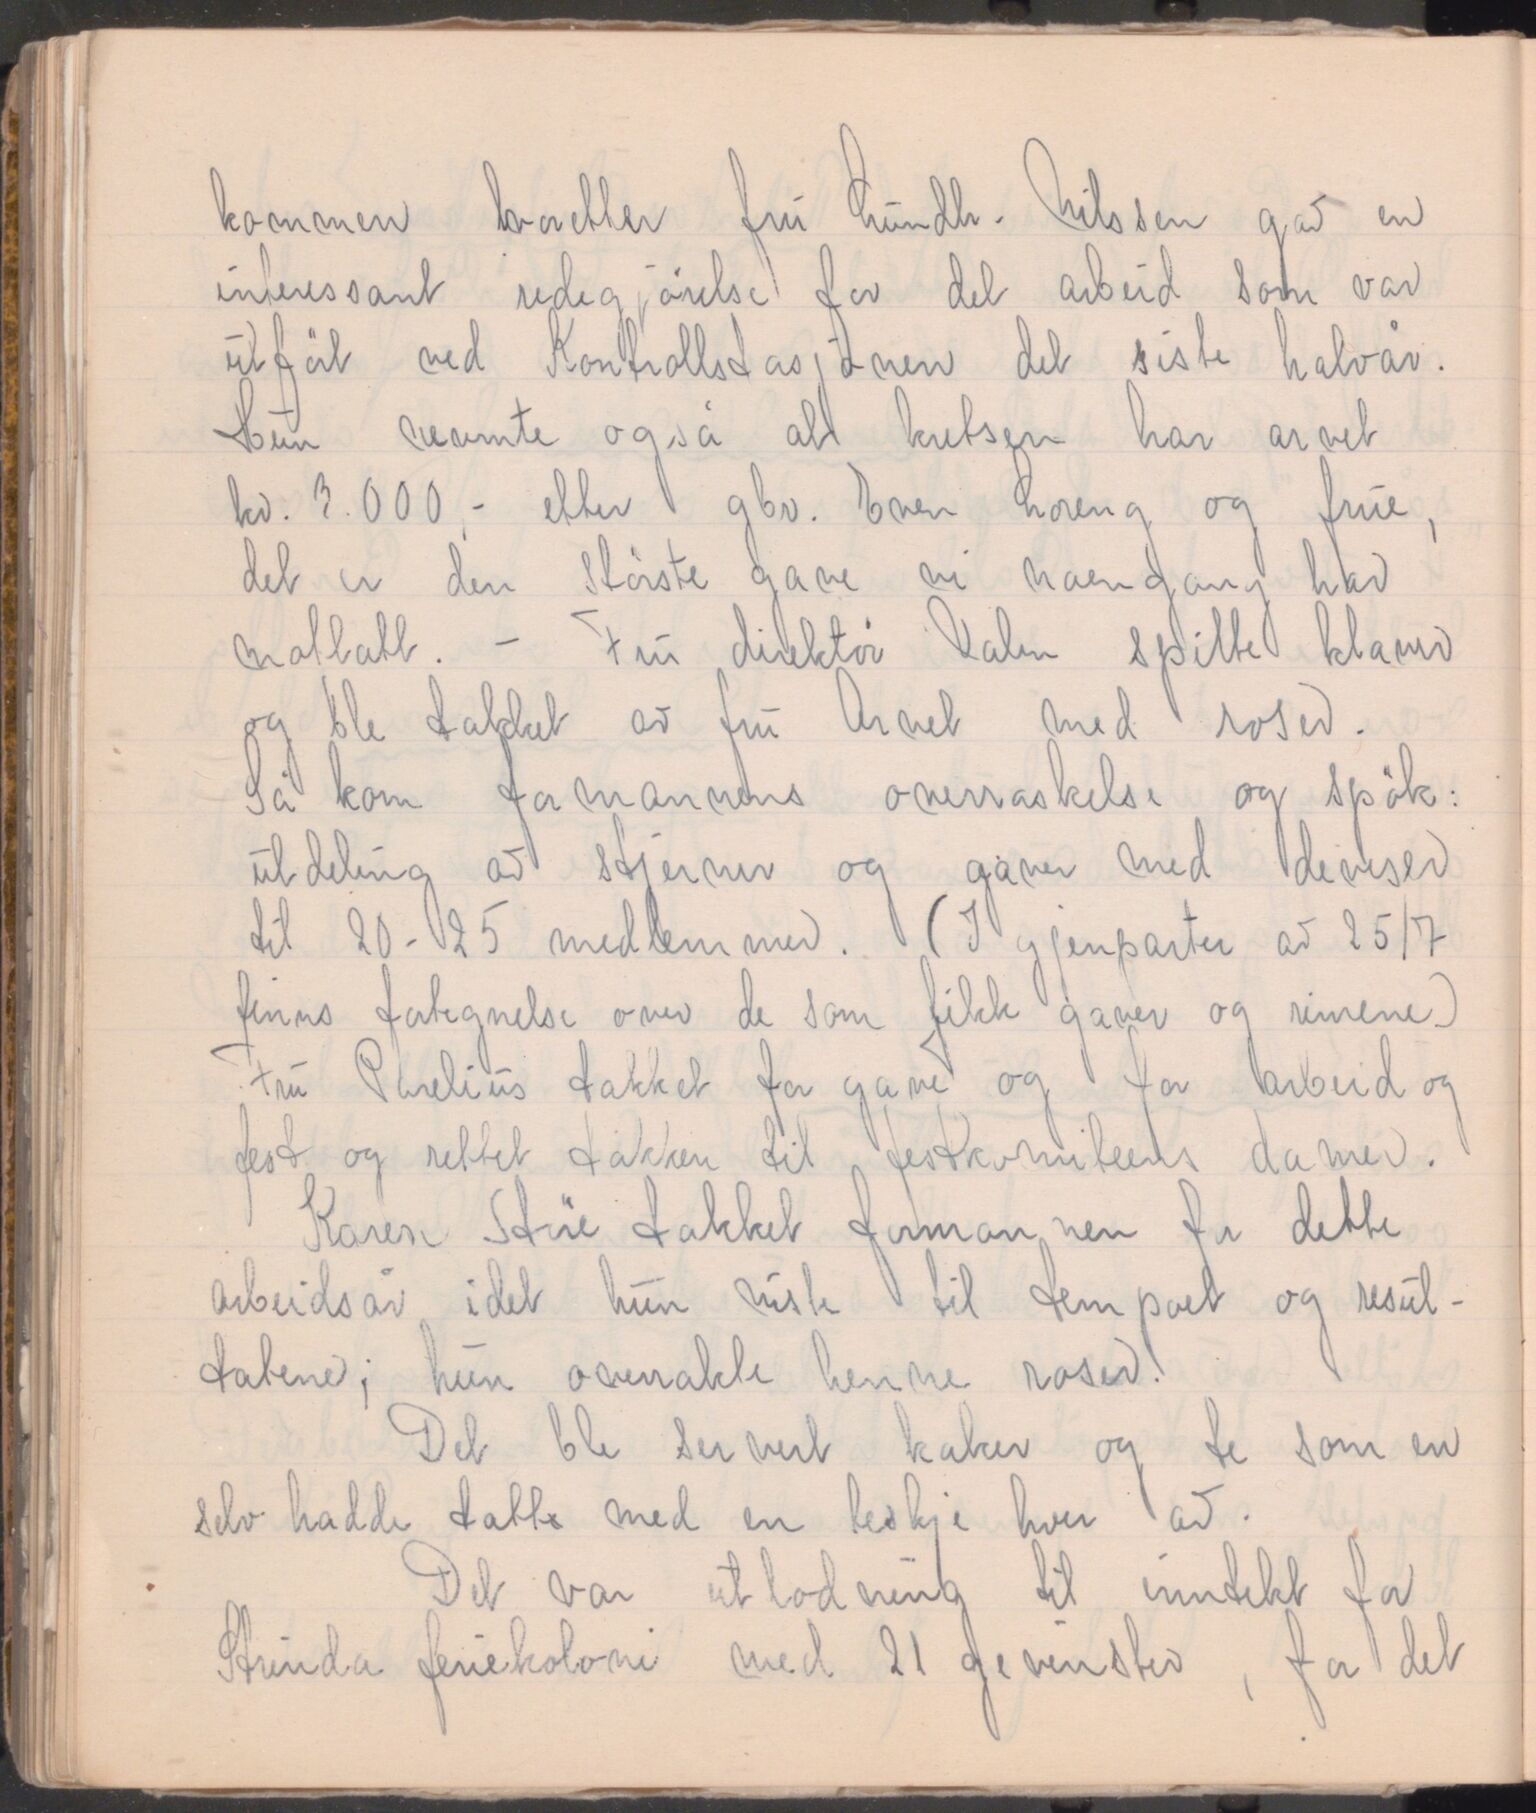 kommen hvoretter fru Lundh. Nilssen gav en
interessant redegjörelse for det arbeid som var
utfört ved Kontrollstasjonen det siste halvår.
Hun nevnte også at kretsen har arvet
kr. 3.000,- etter gbr. Even Loreng og frue,
det er den störste gave vi noengang har
mottatt. - Fru direktör Dahn spilte klaver
og ble takket av fru Arnet med roser.
Så kom formannens overraskelse og spök:
utdeling av stjerner og gaver med deviser
til 20-25 medlemmer. (I gjenparter av 25/7
finns fortegnelse over de som fikk gaver og rimene)
Fru Parelius takket for gave og for arbeid og
fest og rettet takken til festkomiteens damer.
Karen Stüe takket formannen for dette
arbeidsår idet hun viste til tempoet og resul-
tatene; hun overrakte henne roser.
Det ble servert kaker og te som en
selv hadde tatt med en teskje hver av.
Det var utlodning til inntekt for
Strinda feriekoloni med 21 gevinster, for det